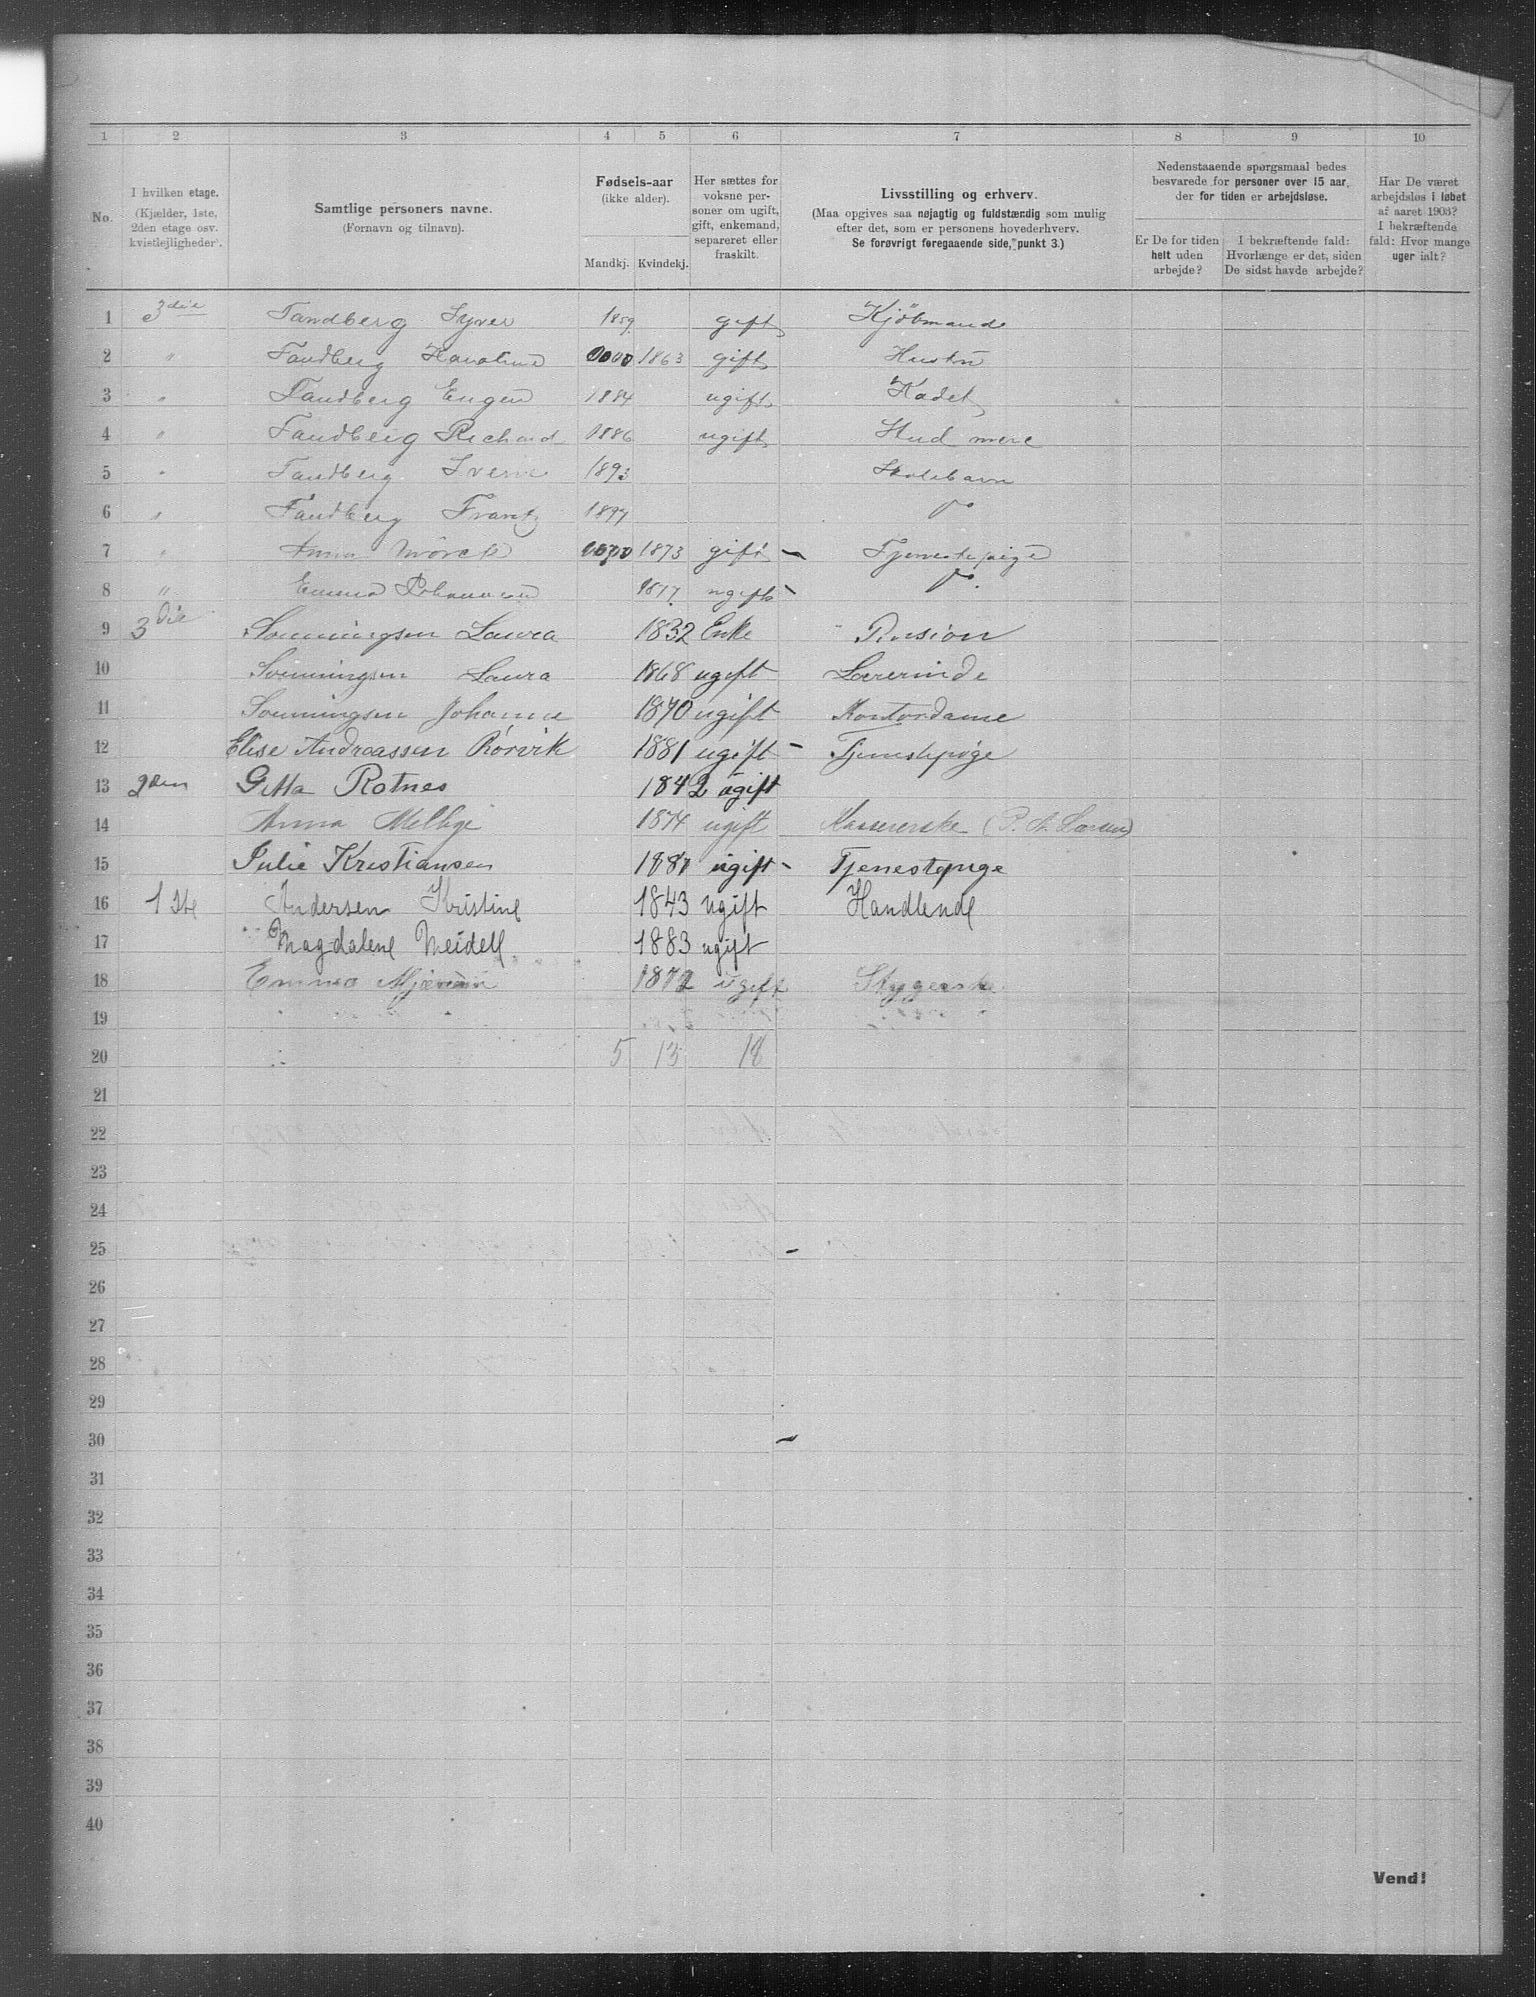 1 2 3 4 5 6 7 8 9 10
No.
I hvilken etage.
(Kjælder, 1ste,
2den etage osv.
kvistlejligheder).
Samtlige personers navne.
(Fornavn og tilnavn).
Fødsels-aar
(ikke alder).
Mandkj. Kvindekj.
Her sættes for
voksne per-
soner om ugift,
gift, enkemand,
separeret eller
fraskilt.
Livsstilling og erhverv.
(Maa opgives saa nøjagtig og fuldstændig som mulig
efter det, som er personens hovederhverv.
Se forøvrigt foregaaende side, punkt 3.)
Nedenstaaende spørgsmaal bedes
besvarede for personer over 15 aar,
der for tiden er arbejdsløse.
Er De for tiden
helt uden
arbejde?
I bekræftende fald:
Hvorlænge er det, siden
De sidst havde arbejde?
Har De været
arbejdsløs i løbet
af aaret 1903?
I bekræftende
fald: Hvor mange
uger ialt?
1 3die Tandberg Syver 1859 gift Kjøbmand
2 " Tandberg 1863 gift Hustru
3 " Tandberg Eugen 1884 ugift Kadet
4 " Tandberg Richard 1886 ugift
5 " Tandberg 1893 Skolebarn
6 " Tandberg Frantz 1897
7 " Anna Mörck 1873 gift - Tjenestepige
8 " Emma Johannesen 1877 ugift -
9 3die Sonningsen Laura 1832 Enke Pension
10 Sonningsen Laura 1868 ugift Lærerinde
11 Sonningsen Johanna 1870 ugift Kontordame
12 Elise Andreassen Rørvik 1881 ugift - Tjenestepige
13 2den Gitta Rotnes 1842 ugift
14 Anna 1874 ugift Kassererske (P. A. Larsen)
15 Julie Kristiansen 1881 ugift - Tjenestepige
16 1ste Andersen Kristine 1843 ugift Handlende
17 Magdalene Meidell 1883 ugift
18 Emma 1872 ugift
19
20 5 13 18
21
22
23
24
25
26
27
28
29
30
31
32
33
34
35
36
37
38
39
40
Vend!